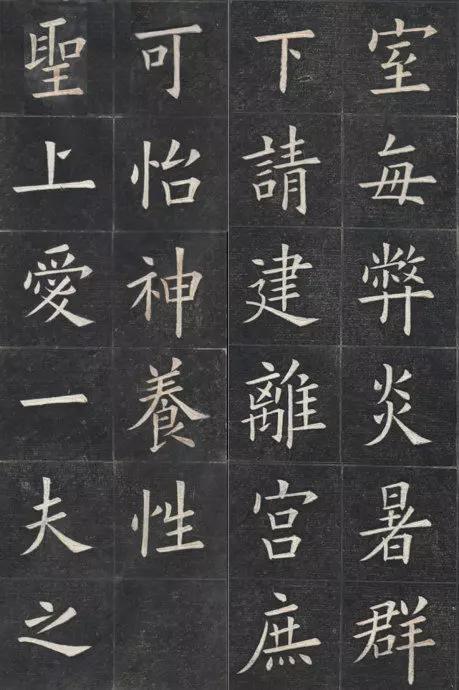 室每弊炎暑群
下請建離宮庶
可怡神養性
聖上愛一夫之